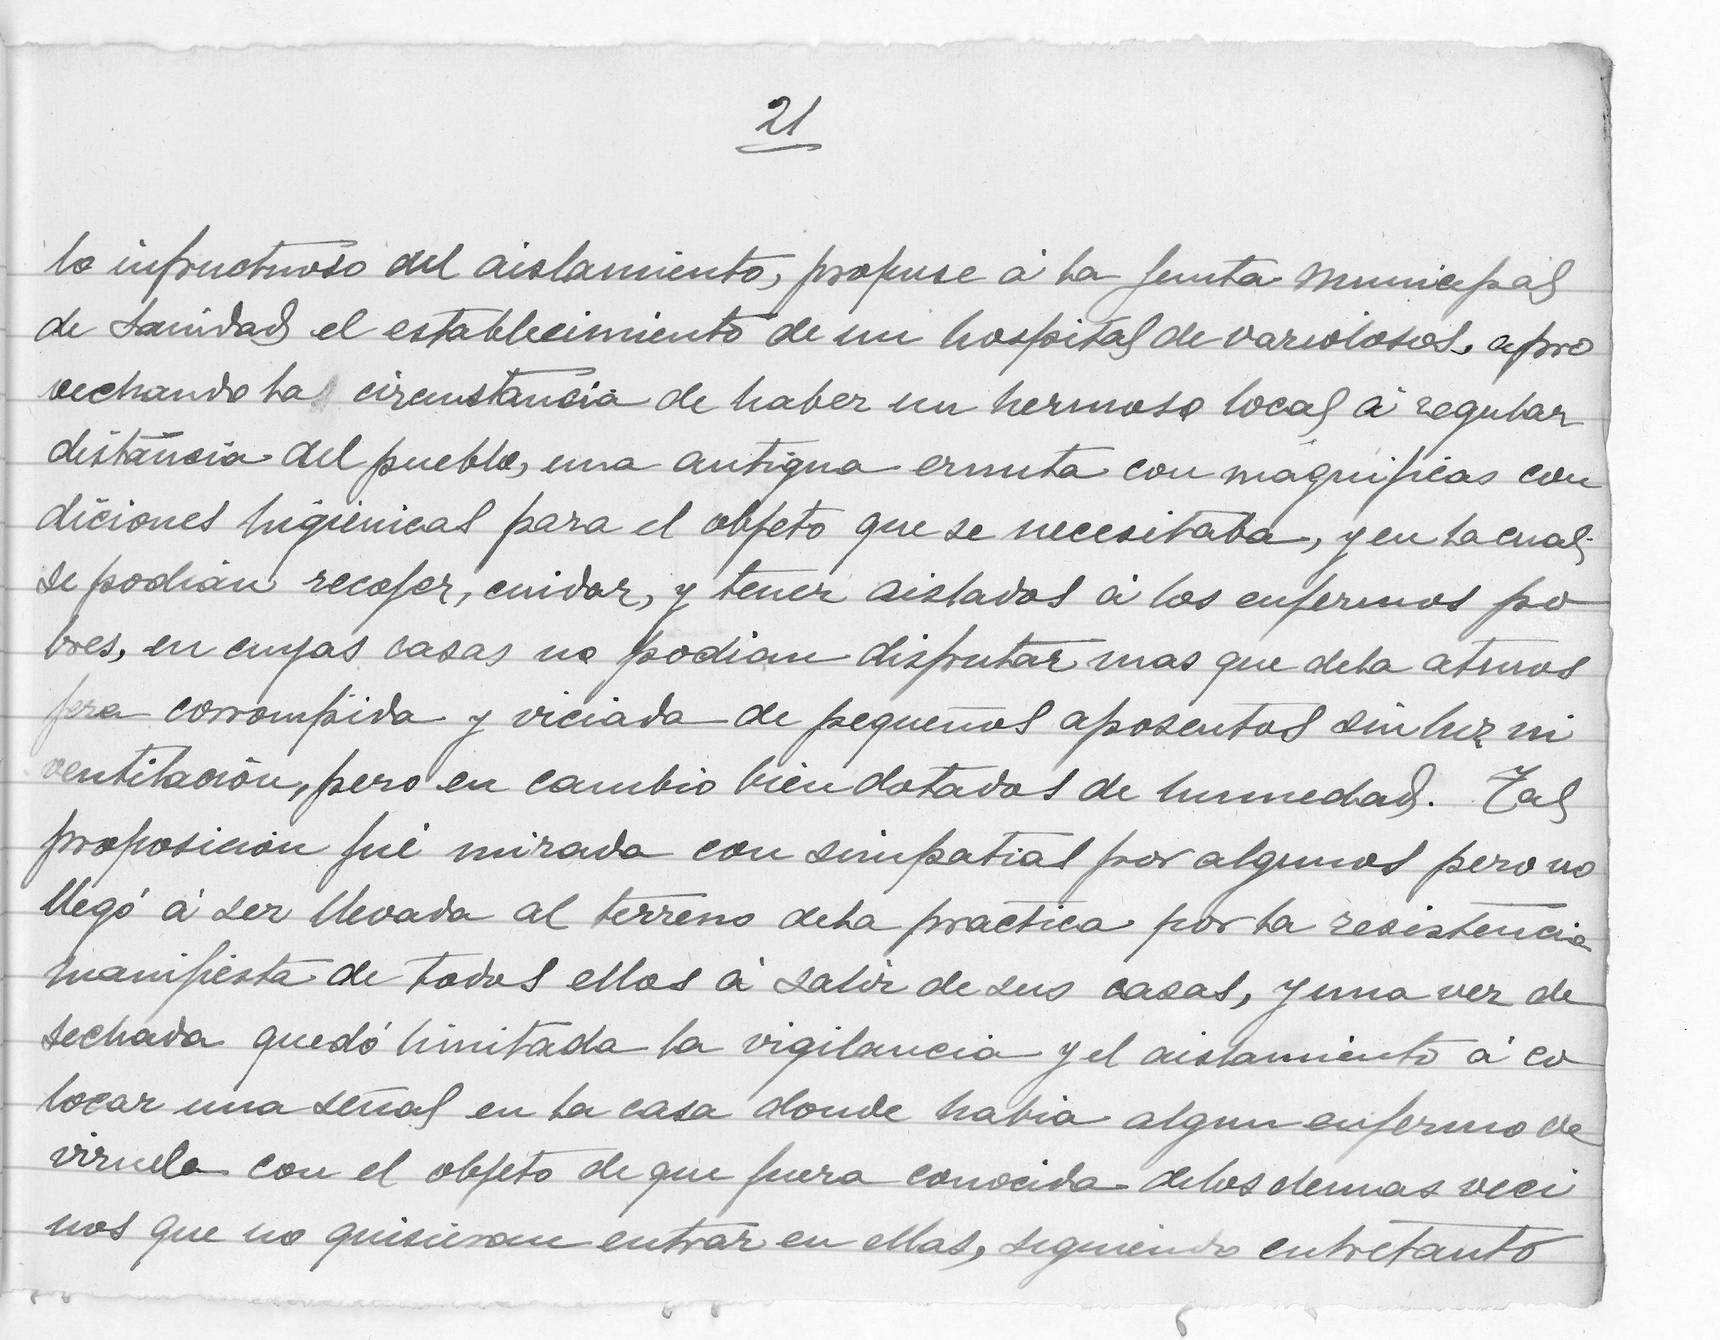 21
lo infructuoso del aislamiento, propuse á la junta municipal
de Sanidad el establecimiento de un hospital de variolosos, apro
vechando la circunstancia de haber un hermoso local á regular
distancia del pueblo, una antigua ermita con magnificas con
diciones higienicas para el objeto que se necesitaba, y en la cual
se podian recojer, cuidar, y tener aislados á los enfermos po
bres, en cuyas casas no podian disfrutar mas que de la atmos
fera corrompida y viciada de pequeños aposentos sin luz ni
ventilación, pero en cambio bien dotados de humedad. Tal
proposición fué mirada con simpatias por algunos pero no
llegó á ser llevada al terreno de la practica por la resistencia
manifiesta de todos ellos á salir de sus casas, y una vez de
sechada quedó limitada la vigilancia y el aislamiento á co
locar una señal en la casa donde habia algun enfermo de
viruela con el objeto de que fuera conocida de los demas veci
nos que no quisieran entrar en ellas, siguiendo entretanto